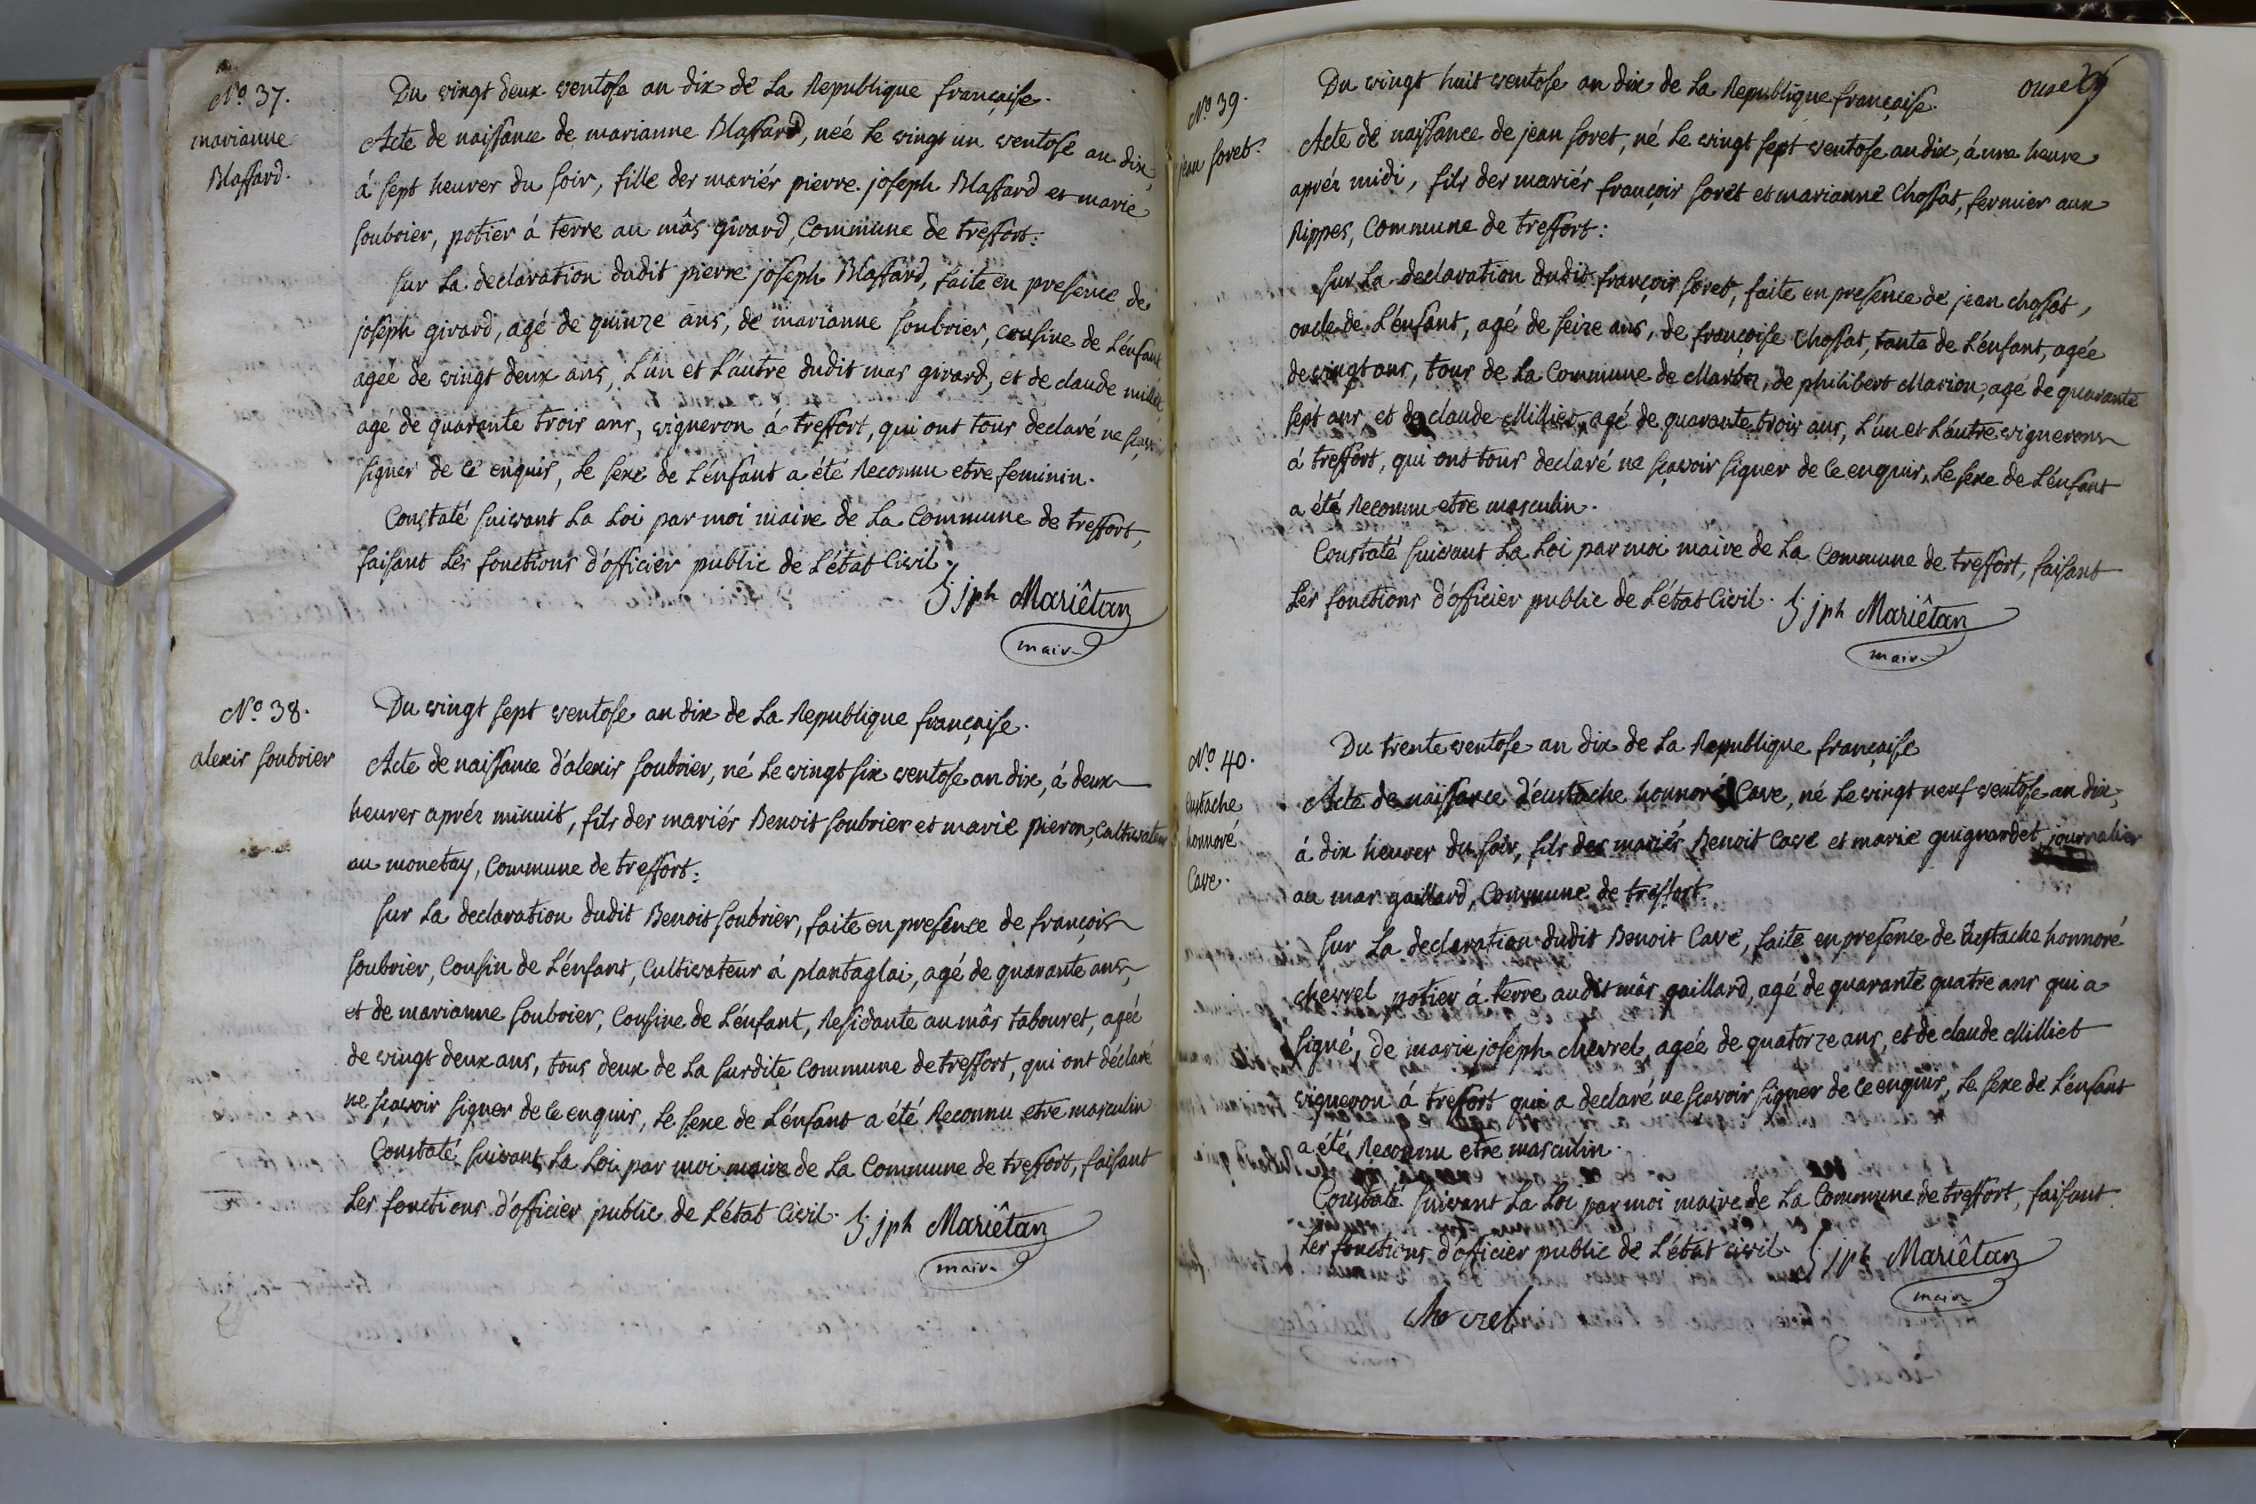 No. 37.
marianne
Blassard.
Du vingt deux ventose an dix de La Republique française.
Acte de naissance de marianne Blassard, neé le vingt un ventose an dix,
á sept heures du soir, fille des mariés pierre joseph Blassard et marie
soubrier, potier á terre au mâs girard, Commune de treffort:
sur La declaration dudit pierre joseph Blassard, faite en presence de
joseph girard, agé de quinze ans, de marianne soubrier, cousine de L'énfant
agée de vingt deux ans, L'un et L'autre dudit mas girard, et de claude milliet
agé de quarante trois ans, vigneron á treffort, qui ont tous declaré ne sçavoir
signer de ce enquis, Le sexe de L'énfant a été Reconnu etre feminin.
Constaté suivant La Loi par moi maire de La Commune de treffort,
faisant Les fonctions d'officier public de L'état Civil.
jph Mariêtan
maire
No. 38.
alexis soubrier
Du vingt sept ventose an dix de La Republique française.
Acte de naissance d'alexis soubrier, né Le vingt six ventose an dix, á deux
heures aprés minuit, fils des mariés Benoit soubrier et marie pieron, Cultivateur
au monetay, Commune de treffort:
sur La declaration dudit Benoit soubrier, faite en presence de françois
soubrier, Cousin de L'énfant, Cultivateur á plantaglai, agé de quarante ans,
et de marianne soubrier, Cousine de L'énfant, Residante au mâs tabouret, agée
de vingt deux ans, tous deux de La susdite Commune de treffort, qui ont déclaré
ne sçavoir signer de ce enquis, Le sexe de L'énfant a été Reconnu etre masculin
Constaté suivant La Loi par moi maire de La Commune de treffort, faisant
Les fonctions d'officier public de L'état Civil.
jph Mariêtan
maire
onze
No. 39.
jean soret.
Du vingt huit ventose an dix de La Republique française.
Acte de naissance de jean soret, né Le vingt sept ventose an dix, á une heure
aprés midi, fils des mariés françois soret et marianne Chossat, fermier aux
Rippes, Commune de treffort:
sur La declaration dudit françois soret, faite en presence de jean chossat,
oncle de L'énfant, agé de seize ans, de françoise Chossat, tante de L'énfant, agée
de vingt ans, tous de La Commune de Marboz, de philibert Marion, agé de quarante
sept ans, et de claude Milliet, agé de quarante trois ans, L'un et L'autre vignerons
á treffort, qui ont tous declaré ne sçavoir signer de ce enquis, Le sexe de L'énfant
a été Reconnu etre masculin.
Constaté suivant La Loi par moi maire de La Commune de treffort, faisant
Les fonctions d'officier public de L'état Civil.
jph Mariêtan
maire
No. 40.
Eustache
honnoré
Cave.
Du trente ventose an dix de La Republique française
Acte de naissance d'éustache honnoré Cave, né Le vingt neuf ventose an dix,
á dix heures du soir, fils des mariés Benoit Cave et marie guignardet, journalier
au mas gaillard, Commune de treffort.
sur La declaration dudit Benoit Cave, faite en presence de Eustache honnoré
chevrel potier á terre audit mâs gaillard, agé de quarante quatre ans qui a
signé, de marie joseph chevrel, agée de quatorze ans, et de claude Milliet
vigneron á treffort qui a declaré ne sçavoir signer de ce enquis, Le sexe de L'énfant
a été Reconnu etre masculin.
Constaté suivant La Loi par moi maire de La Commune de treffort, faisant
Les fonctions d'officier public de L'état civil.
jph Mariêtan
maire